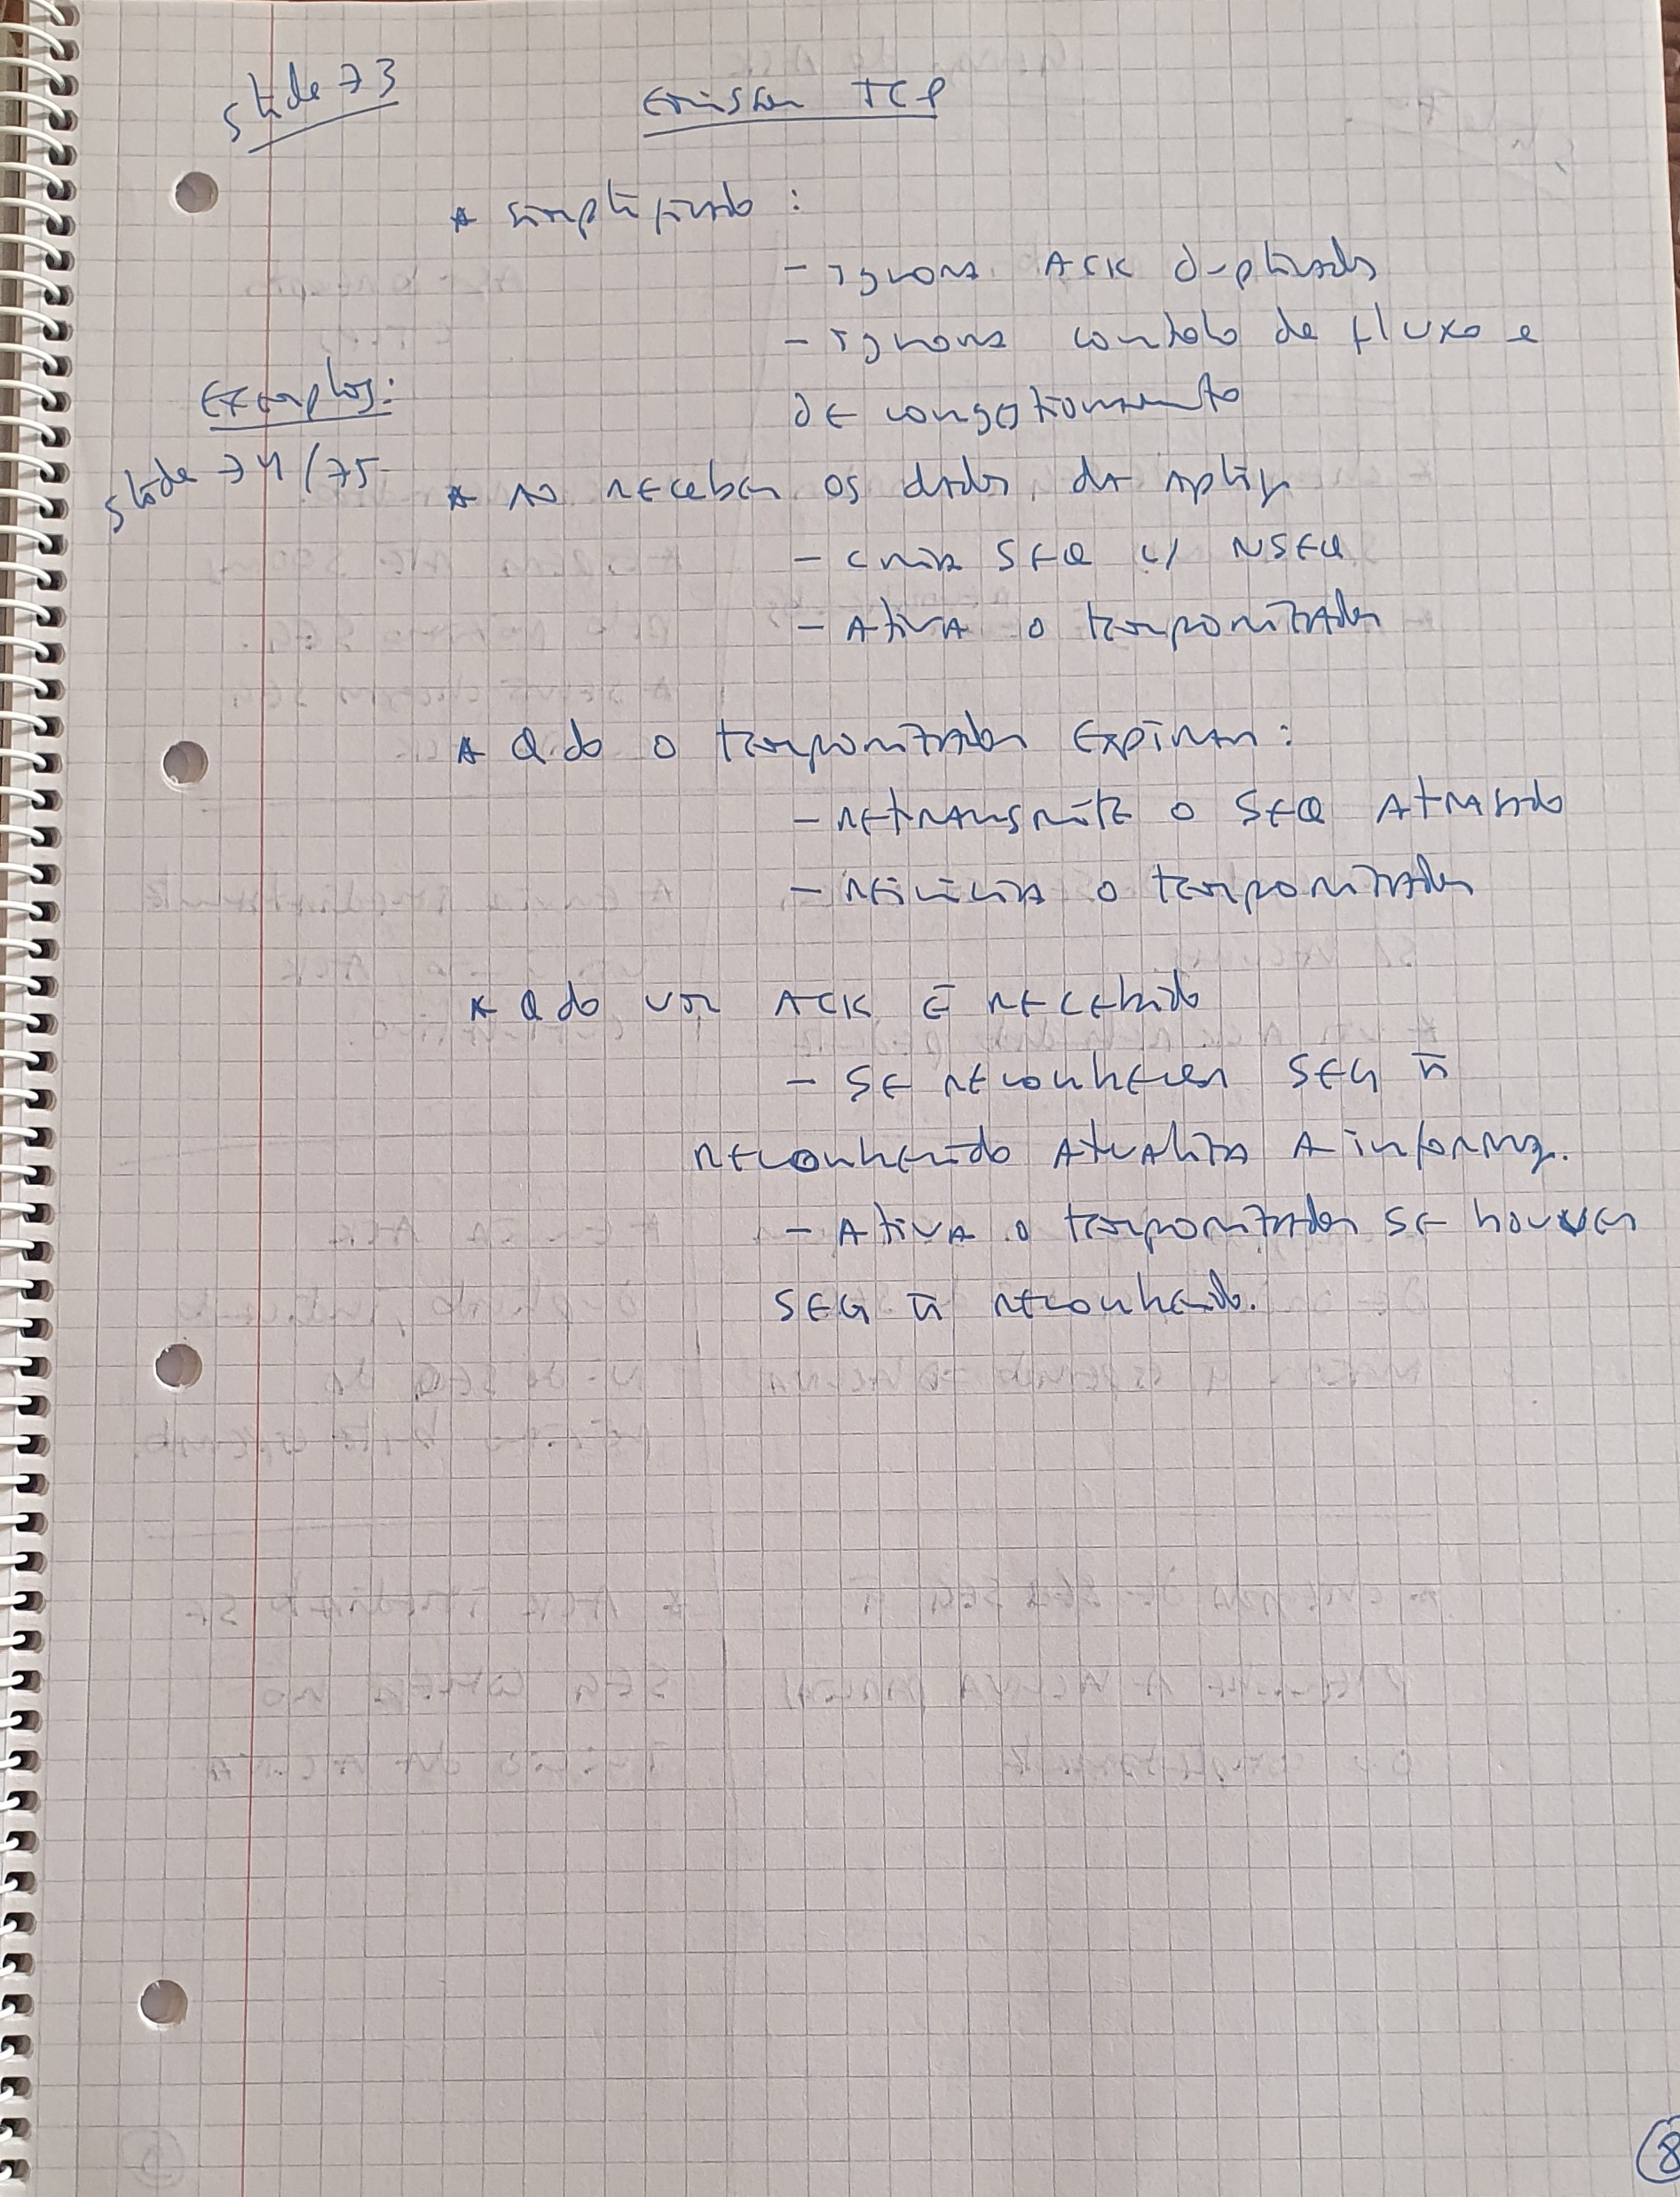 slide 73
Emissor TCP
* simplificado :
- ignora ACK duplicados
- ignora controlo de fluxo e
de congestionamento
Exemplos:
slide 74/75
* ao receber os dados da apliç
- cria SEQ c/ NSEQ
- Ativa o temporizador
* Qdo o temporizador Expirar:
- retransmite o SEQ Atrasado
- reinicia o temporizador
* Qdo um ACK é recebido
- SE reconhecer SEG ñ
reconhecido Atualiza A informaç.
- Ativa o temporizador SE houver
SEG ñ reconhecido.
8